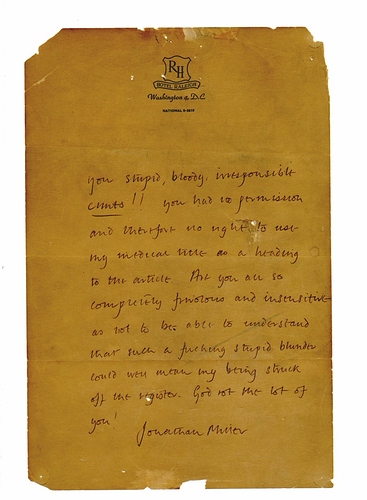 RH
HOTEL RALEIGH
Washington 4, D.C.
NATIONAL 8-3810
you stupid, bloody, irresponsible
cunts!! you had no permission
and therefore no right to use
my medical title as a heading
to this article. Are you all so
completely frivolous and insensitive
as not to be able to understand
that such a fucking stupid blunder
could well mean my being struck
off the register. God rot the lot of
you!
Jonathan Miller